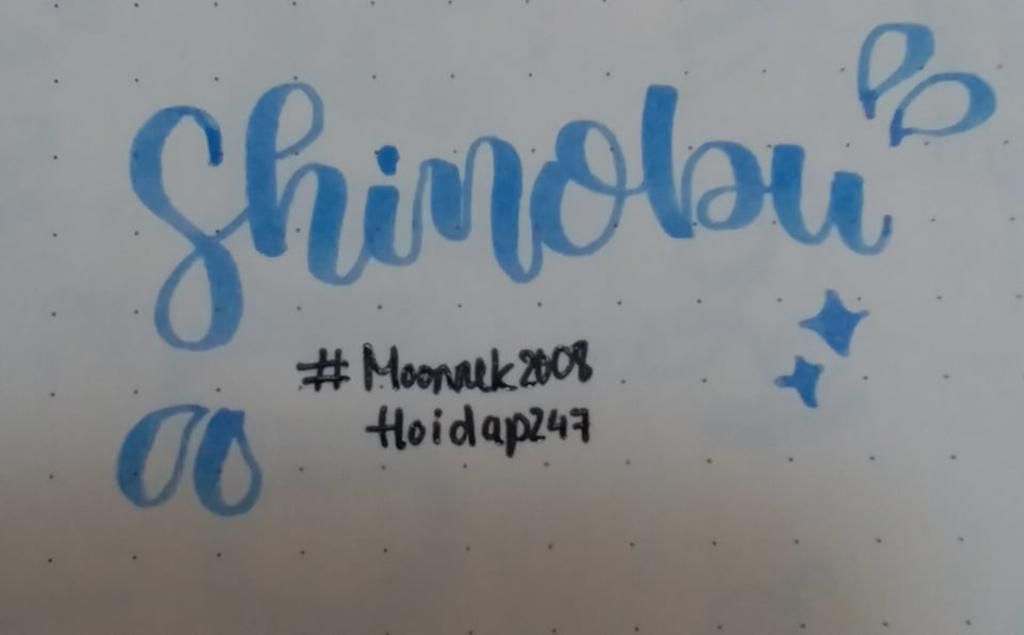 Shinobu
# Moonnek2008
Hoidap247